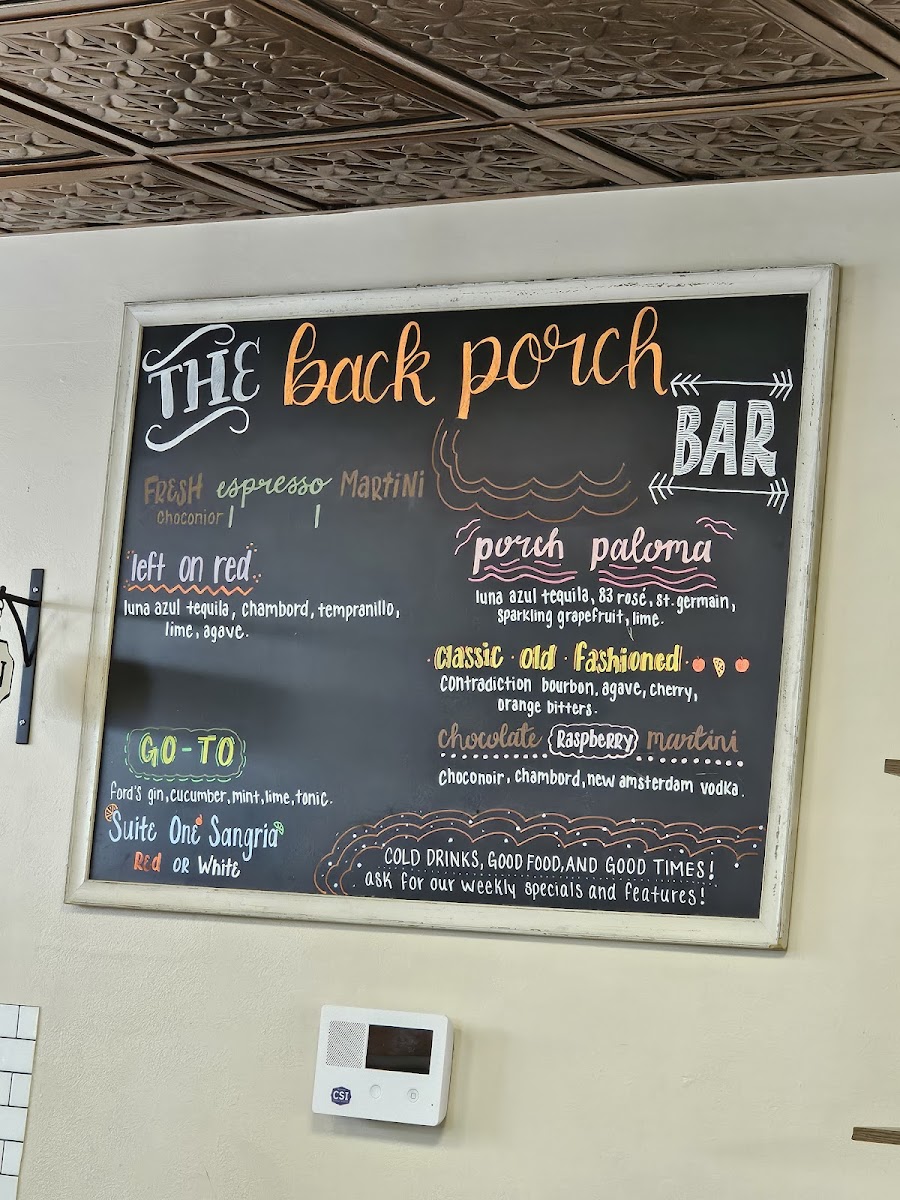 THE back porch
BAR
FRESH espresso MARTINI
Choconior
left on red
luna azul tequila, chambord, tempranillo,
lime, agave.
GO-TO
ford's gin, cucumber, mint, lime, tonic.
Suite One Sangria
Red OR White
porch paloma
luna azul tequila, 83 rosé, st. germain,
sparkling grapefruit, lime.
classic · old · fashioned
contradiction bourbon, agave, cherry,
orange bitters.
chocolate Raspberry martini
choconoir, chambord, new amsterdam vodka.
COLD DRINKS, GOOD FOOD, AND GOOD TIMES!
ask for our weekly specials and features!
CST